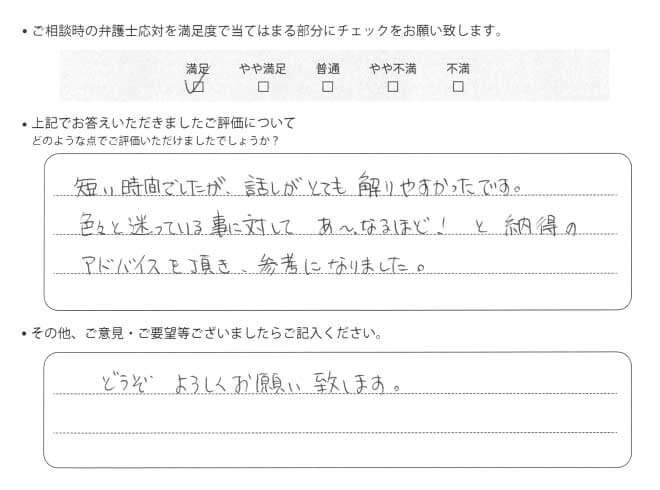 • ご相談時の弁護士応対を満足度で当てはまる部分にチェックをお願い致します。
満足 やや満足 普通 やや不満 不満
☑ □ □ □ □
• 上記でお答えいただきましたご評価について
どのような点でご評価いただけましたでしょうか？
短い時間でしたが、話しがとても解りやすかったです。
色々と迷っている事に対して あ〜、なるほど！ と 納得の
アドバイスを頂き、参考になりました。
• その他、ご意見・ご要望等ございましたらご記入ください。
どうぞ よろしくお願い致します。